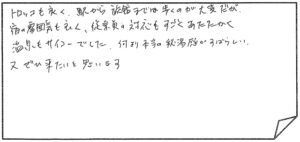 トロッコも良く、駅から旅館までは歩くのが大変だが、
宿の雰囲気も良く、従業員の対応もすごくあたたかく
温泉もサイコーでした。何より本当の秘湯感がすばらしい。
又ぜひ来たいと思います